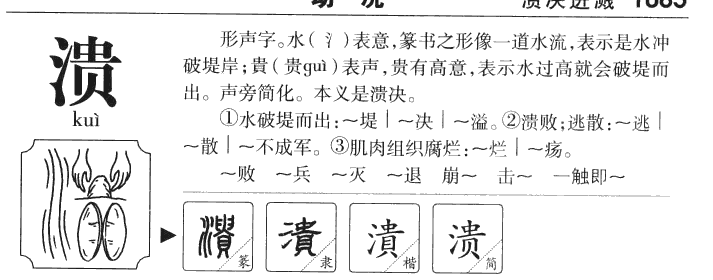 溃决迸溅 1085
溃
kuì
形声字。水(氵)表意,篆书之形像一道水流,表示是水冲
破堤岸;貴(贵guì)表声,贵有高意,表示水过高就会破堤而
出。声旁简化。本义是溃决。
①水破堤而出:~堤|~决|~溢。②溃败;逃散:~逃|
~散|~不成军。③肌肉组织腐烂:~烂|~疡。
~败 ~兵 ~灭 ~退 崩~ 击~ 一触即~
潰 篆
潰 隶
潰 楷
溃 简